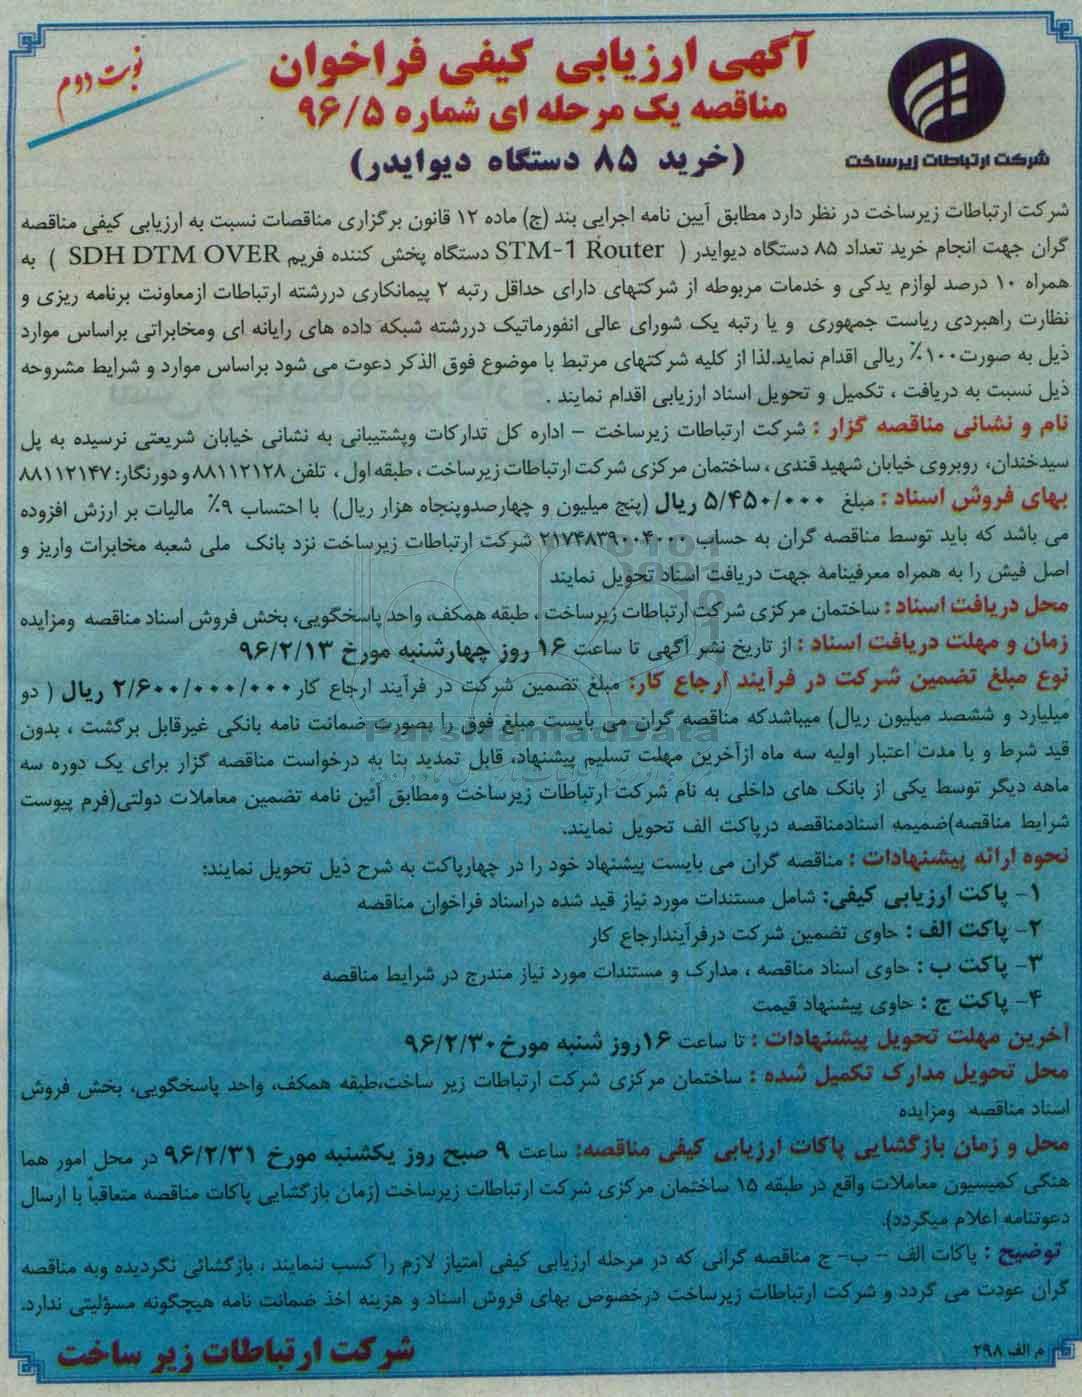 آگهی ارزیابی کیفی فراخوان
مناقصه یک مرحله ای شماره ۹۶/۵
(خرید ۸۵ دستگاه دیوایدر)
نوبت دوم
شرکت ارتباطات زیرساخت
شرکت ارتباطات زیرساخت در نظر دارد مطابق آیین نامه اجرایی بند (ج) ماده ۱۲ قانون برگزاری مناقصات نسبت به ارزیابی کیفی مناقصه
گران جهت انجام خرید تعداد ۸۵ دستگاه دیوایدر ( STM-1 Router دستگاه پخش کننده فریم SDH DTM OVER ) به
همراه ۱۰ درصد لوازم یدکی و خدمات مربوطه از شرکتهای دارای حداقل رتبه ۲ پیمانکاری دررشته ارتباطات ازمعاونت برنامه ریزی و
نظارت راهبردی ریاست جمهوری و یا رتبه یک شورای عالی انفورماتیک دررشته شبکه داده های رایانه ای ومخابراتی براساس موارد
ذیل به صورت۱۰۰٪ ریالی اقدام نماید.لذا از کلیه شرکتهای مرتبط با موضوع فوق الذکر دعوت می شود براساس موارد و شرایط مشروحه
ذیل نسبت به دریافت ، تکمیل و تحویل اسناد ارزیابی اقدام نمایند .
نام و نشانی مناقصه گزار : شرکت ارتباطات زیرساخت – اداره کل تدارکات وپشتیبانی به نشانی خیابان شریعتی نرسیده به پل
سیدخندان، روبروی خیابان شهید قندی ، ساختمان مرکزی شرکت ارتباطات زیرساخت ، طبقه اول ، تلفن ۸۸۱۱۲۱۲۸ و دورنگار: ۸۸۱۱۲۱۴۷
بهای فروش اسناد : مبلغ ۵/۴۵۰/۰۰۰ ریال (پنج میلیون و چهارصدوپنجاه هزار ریال) با احتساب ۹٪ مالیات بر ارزش افزوده
می باشد که باید توسط مناقصه گران به حساب ۲۱۷۴۸۳۹۰۰۴۰۰۰ شرکت ارتباطات زیرساخت نزد بانک ملی شعبه مخابرات واریز و
اصل فیش را به همراه معرفینامه جهت دریافت اسناد تحویل نمایند
محل دریافت اسناد : ساختمان مرکزی شرکت ارتباطات زیرساخت ، طبقه همکف، واحد پاسخگویی، بخش فروش اسناد مناقصه ومزایده
زمان و مهلت دریافت اسناد : از تاریخ نشر آگهی تا ساعت ۱۶ روز چهارشنبه مورخ ۹۶/۲/۱۳
نوع مبلغ تضمین شرکت در فرآیند ارجاع کار: مبلغ تضمین شرکت در فرآیند ارجاع کار۲/۶۰۰/۰۰۰/۰۰۰ ریال ( دو
میلیارد و ششصد میلیون ریال) میباشدکه مناقصه گران می بایست مبلغ فوق را بصورت ضمانت نامه بانکی غیرقابل برگشت ، بدون
قید شرط و با مدت اعتبار اولیه سه ماه ازآخرین مهلت تسلیم پیشنهاد، قابل تمدید بنا به درخواست مناقصه گزار برای یک دوره سه
ماهه دیگر توسط یکی از بانک های داخلی به نام شرکت ارتباطات زیرساخت ومطابق آئین نامه تضمین معاملات دولتی(فرم پیوست
شرایط مناقصه)ضمیمه اسنادمناقصه درپاکت الف تحویل نمایند.
نحوه ارائه پیشنهادات : مناقصه گران می بایست پیشنهاد خود را در چهارپاکت به شرح ذیل تحویل نمایند:
۱- پاکت ارزیابی کیفی: شامل مستندات مورد نیاز قید شده دراسناد فراخوان مناقصه
۲- پاکت الف : حاوی تضمین شرکت درفرآیندارجاع کار
۳- پاکت ب : حاوی اسناد مناقصه ، مدارک و مستندات مورد نیاز مندرج در شرایط مناقصه
۴- پاکت ج : حاوی پیشنهاد قیمت
آخرین مهلت تحویل پیشنهادات : تا ساعت ۱۶روز شنبه مورخ۹۶/۲/۳۰
محل تحویل مدارک تکمیل شده : ساختمان مرکزی شرکت ارتباطات زیر ساخت،طبقه همکف، واحد پاسخگویی، بخش فروش
اسناد مناقصه ومزایده
محل و زمان بازگشایی پاکات ارزیابی کیفی مناقصه: ساعت ۹ صبح روز یکشنبه مورخ ۹۶/۲/۳۱ در محل امور هما
هنگی کمیسیون معاملات واقع در طبقه ۱۵ ساختمان مرکزی شرکت ارتباطات زیرساخت (زمان بازگشایی پاکات مناقصه متعاقباً با ارسال
دعوتنامه اعلام میگردد).
توضیح : پاکات الف – ب– ج مناقصه گرانی که در مرحله ارزیابی کیفی امتیاز لازم را کسب ننمایند ، بازگشائی نگردیده وبه مناقصه
گران عودت می گردد و شرکت ارتباطات زیرساخت درخصوص بهای فروش اسناد و هزینه اخذ ضمانت نامه هیچگونه مسؤلیتی ندارد.
م الف ۲۹۸
شرکت ارتباطات زیر ساخت
ParsNamadData